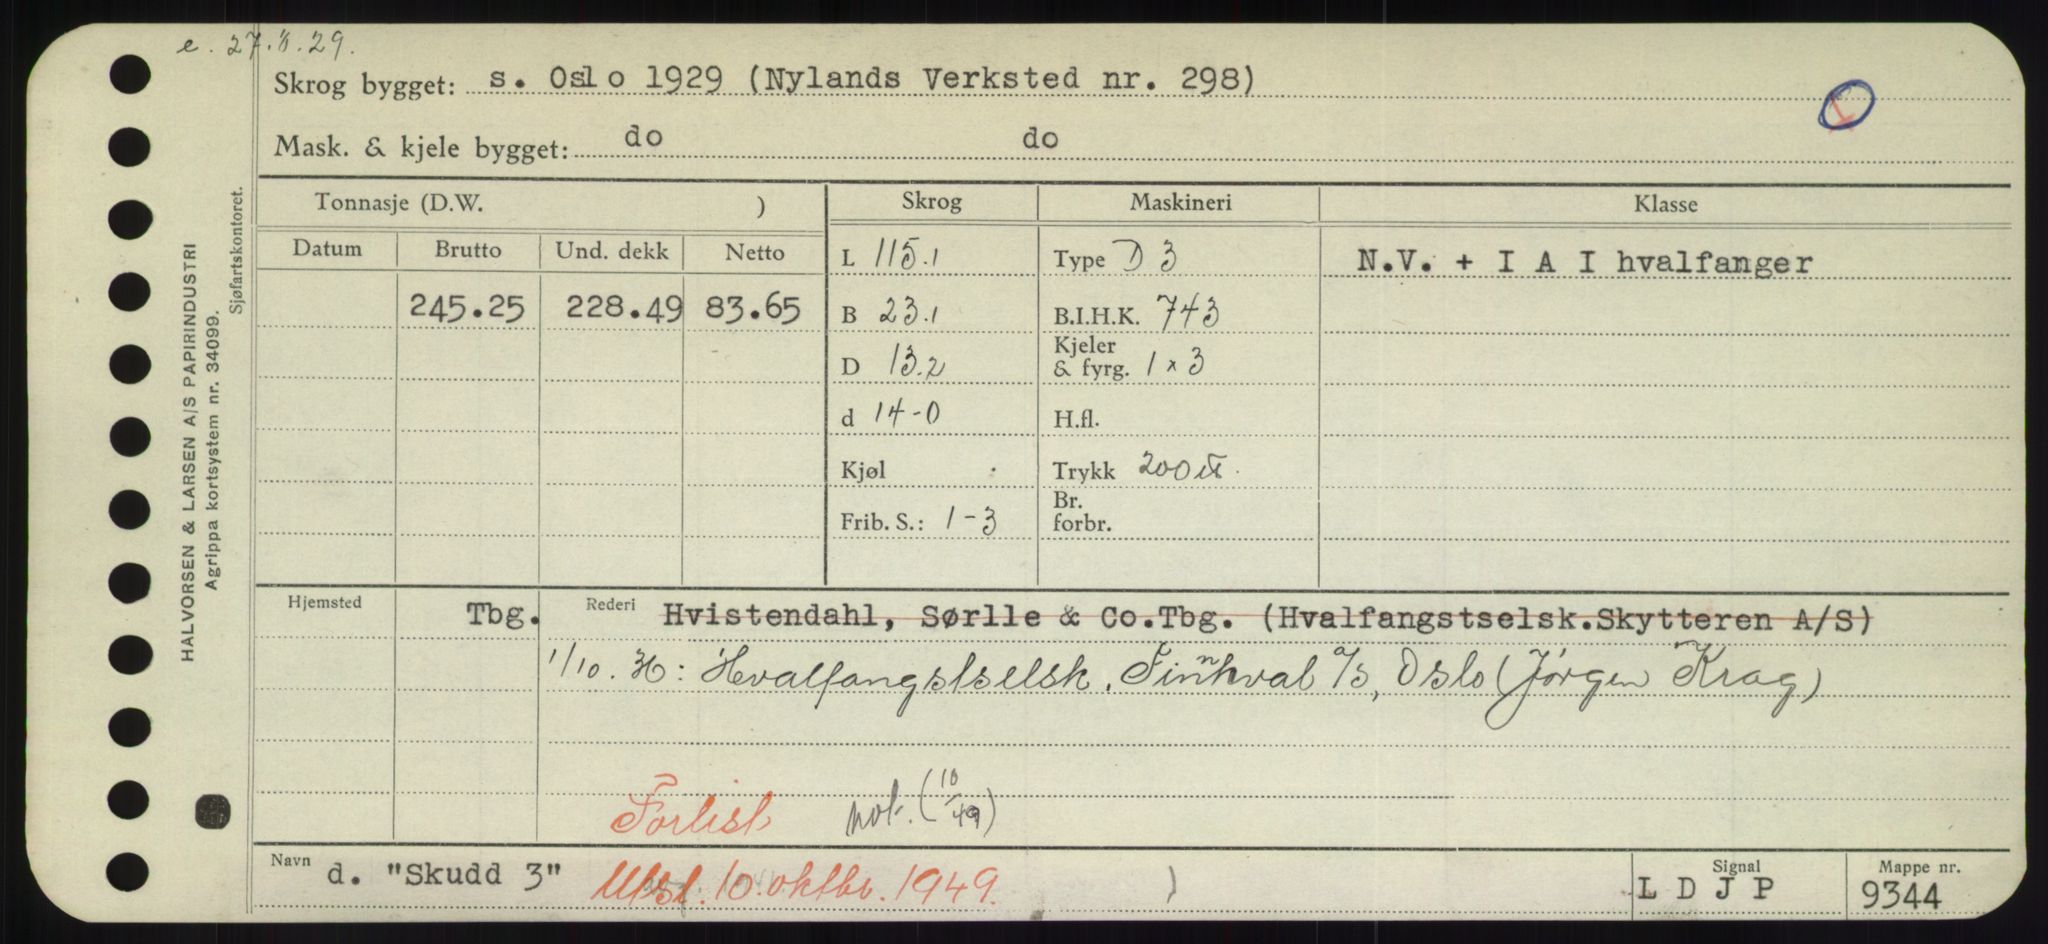 e. 27.8.29.
Skrog bygget: s. Oslo 1929 (Nylands Verksted nr. 298)
I
Mask. & kjele bygget: do do
Tonnasje (D.W. ) Skrog Maskineri Klasse
Datum Brutto Und. dekk Netto
L 115.1 Type D 3 N.V. + I A I hvalfanger
245.25 228.49 83.65 B 23.1 B.I.H.K. 743
D 13.2 Kjeler & fyrg. 1 x 3
d 14-0 H.fl.
Kjøl Trykk 200
Frib. S.: 1-3 Br. forbr.
Hjemsted Tbg. Rederi Hvistendahl, Sørlle & Co.Tbg. (Hvalfangstselsk.Skytteren A/S)
1/10. : Hvalfangstselsk. Finnhval A/S, Oslo (Jørgen Krag)
Forlist not. (10/49)
Navn d. "Skudd 3" Utsl. 10. oktbr. 1949. ) Signal L D J P Mappe nr. 9344
HALVORSEN & LARSEN A/S PAPIRINDUSTRI
Agrippa kortsystem nr. 34099.
Sjøfartskontoret.